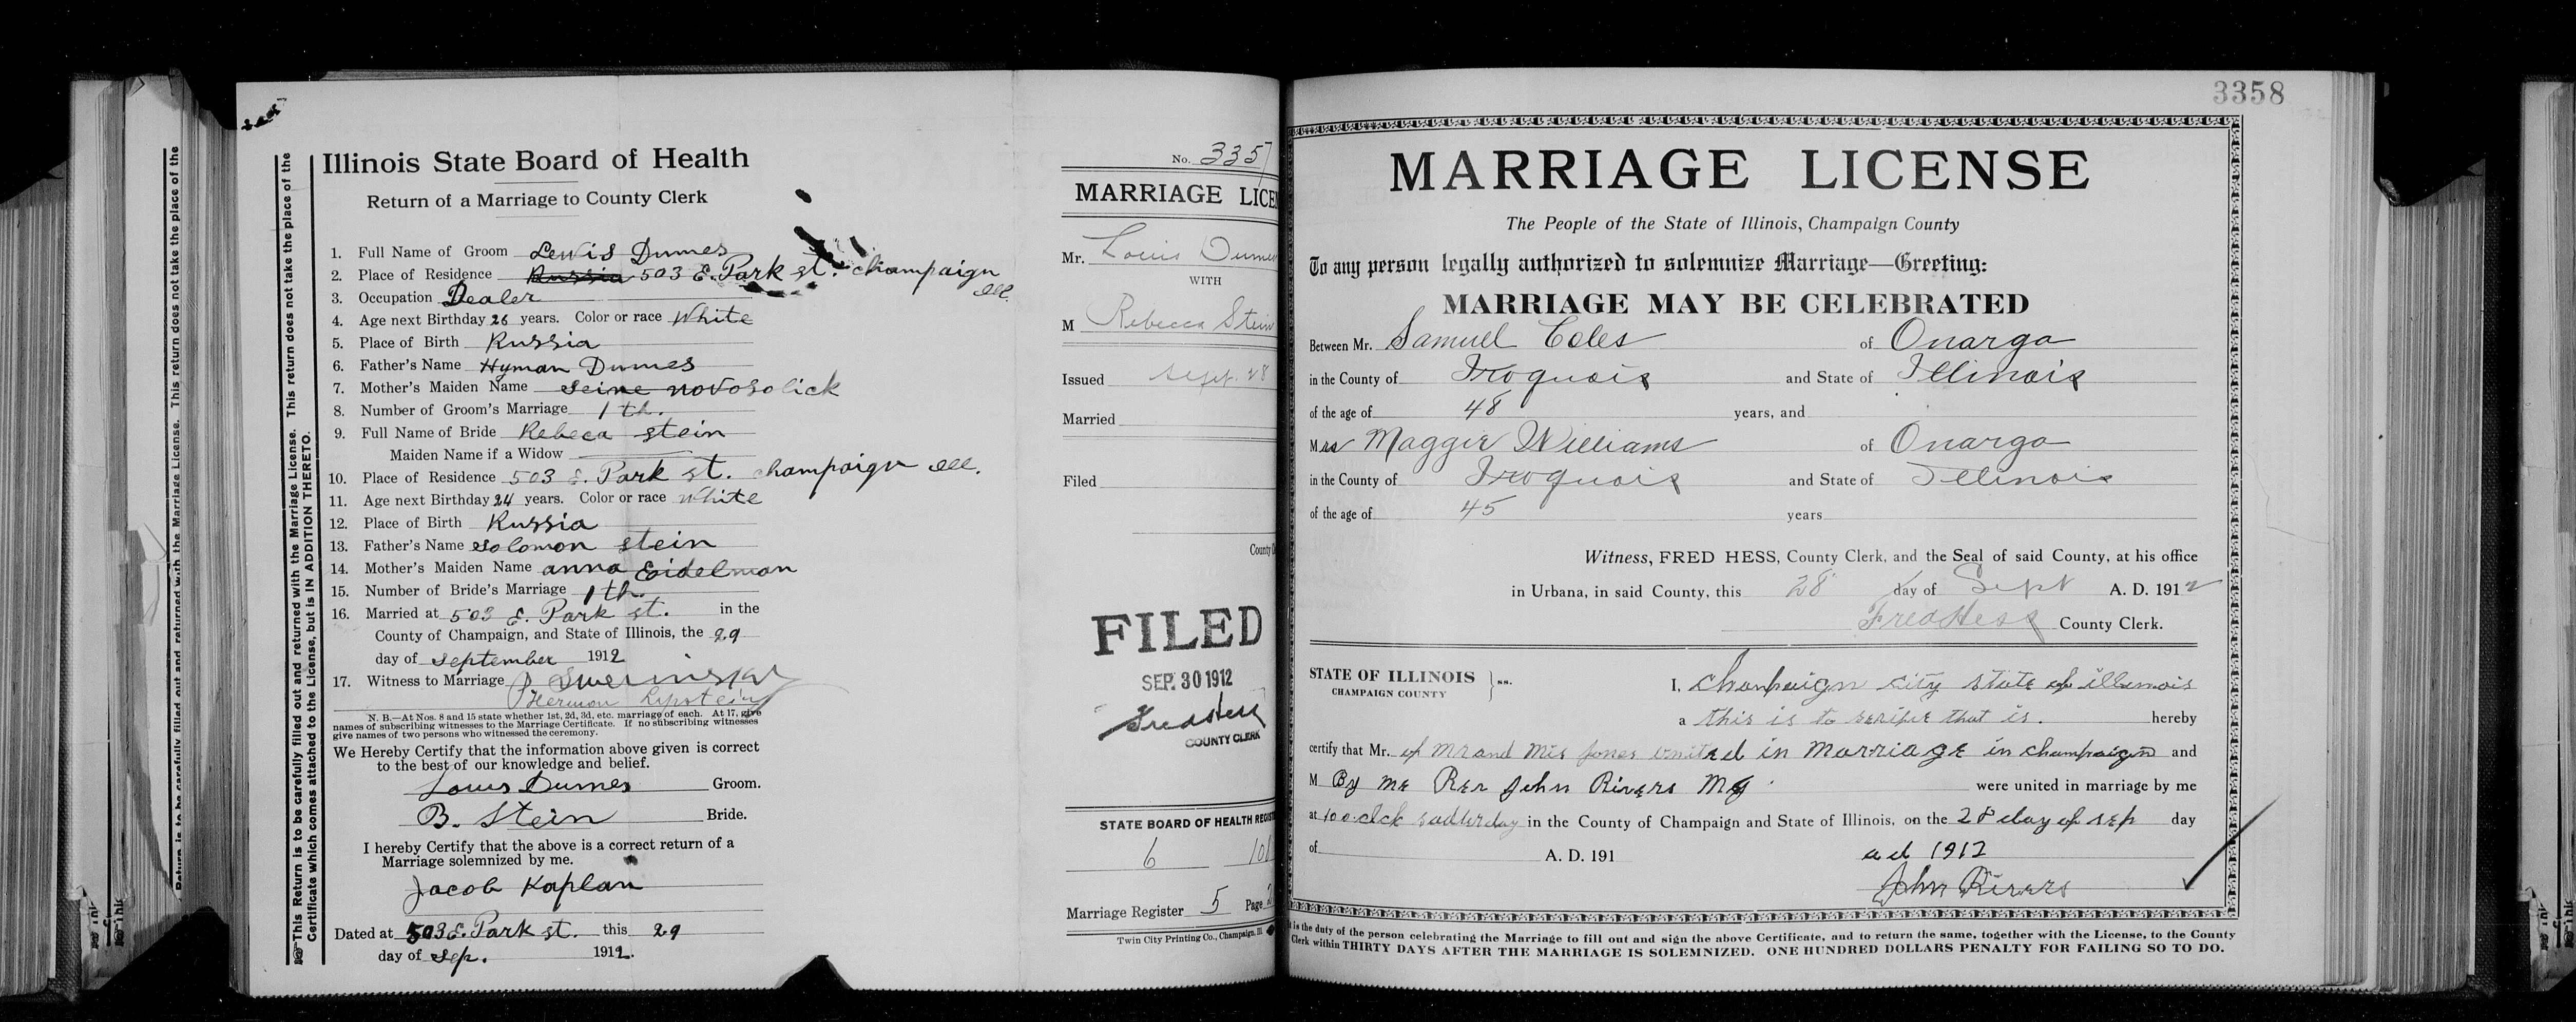 Illinois State Board of Health
Return of a Marriage to County Clerk
1. Full Name of Groom Lewis Dumes
2. Place of Residence Russia 503 E. Park st. champaign
ill.
3. Occupation Dealer
4. Age next Birthday 26 years. Color or race White
5. Place of Birth Russia
6. Father's Name Hyman Dumes
7. Mother's Maiden Name Seine novosolick
8. Number of Groom's Marriage 1 th.
9. Full Name of Bride Rebeca stein
Maiden Name if a Widow
10. Place of Residence 503 E. Park st. champaign ill.
11. Age next Birthday 24 years. Color or race White
12. Place of Birth Russia
13. Father's Name Solomon stein
14. Mother's Maiden Name anna Eidelman
15. Number of Bride's Marriage 1 th.
16. Married at 503 E. Park st. in the
County of Champaign, and State of Illinois, the 29
day of september 1912
17. Witness to Marriage
Herman Lipstein
N. B.—At Nos. 8 and 15 state whether 1st, 2d, 3d, etc. marriage of each. At 17, give
names of subscribing witnesses to the Marriage Certificate. If no subscribing witnesses
give names of two persons who witnessed the ceremony.
We Hereby Certify that the information above given is correct
to the best of our knowledge and belief.
Louis Dumes Groom.
B. Stein Bride.
I hereby Certify that the above is a correct return of a
Marriage solemnized by me.
Jacob Kaplan
Dated at 503 E. Park st. this 29
day of sep. 1912.
This Return is to be carefully filled out and returned with the Marriage License. This return does not take the place of the
Certificate which comes attached to the License, but is IN ADDITION THERETO.
No. 3357
MARRIAGE LICEN
Mr. Louis Dumes
WITH
M Rebecca Stein
Issued Sept. 28
Married
Filed
County
FILED
SEP. 30 1912
Fred Hess
COUNTY CLERK
STATE BOARD OF HEALTH REGIST
6 10
Marriage Register 5 Page 2
Twin City Printing Co., Champaign, Ill
3358
MARRIAGE LICENSE
The People of the State of Illinois, Champaign County
To any person legally authorized to solemnize Marriage—Greeting:
MARRIAGE MAY BE CELEBRATED
Between Mr. Samuel Coles of Onarga
in the County of Iroquois and State of Illinois
of the age of 48 years, and
Mrs Maggie Williams of Onarga
in the County of Iroquois and State of Illinois
of the age of 45 years
Witness, FRED HESS, County Clerk, and the Seal of said County, at his office
in Urbana, in said County, this 28 day of Sept A. D. 1912
Fred Hess County Clerk.
STATE OF ILLINOIS } ss.
CHAMPAIGN COUNTY
I, Champaign city state of illinois
a this is to that is. hereby
certify that Mr. of Mr and Mis Jones united in Marriage in champaign and
M By me Rev John Rivers Mg were united in marriage by me
at 10 o.clck sadterday in the County of Champaign and State of Illinois, on the 28 day of sep day
of A. D. 191 ad 1912
John Rivers
It is the duty of the person celebrating the Marriage to fill out and sign the above Certificate, and to return the same, together with the License, to the County
Clerk within THIRTY DAYS AFTER THE MARRIAGE IS SOLEMNIZED. ONE HUNDRED DOLLARS PENALTY FOR FAILING SO TO DO.